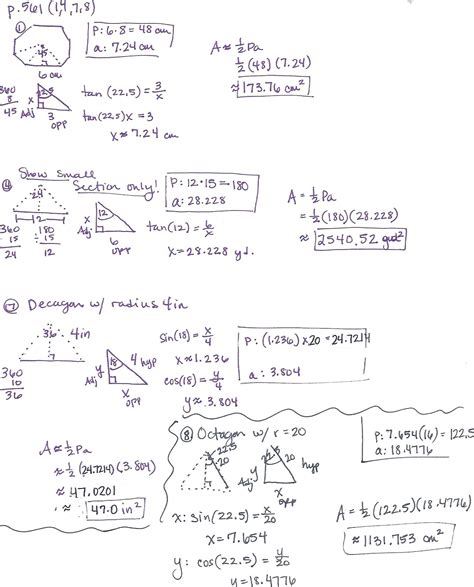 p.561 (1,4,7,8)
① P: 6·8 = 48 cm
a: 7.24 cm
45
6 cm
360
8
45
22.5
x
Adj
3
opp
tan (22.5) = 3/x
tan(22.5)x = 3
x ≈ 7.24 cm
A ≈ ½Pa
½(48)(7.24)
≈ 173.76 cm²
④ Show small
Section only!
24
12
360
15
24
180
÷ 15
12
x
Adj
12
6
opp
P: 12·15 = 180
a: 28.228
tan(12) = 6/x
x = 28.228 yd.
A = ½Pa
= ½(180)(28.228)
≈ 2540.52 yd²
⑦ Decagon w/ radius 4in
36
4in
360
10
36
y
Adj
18
4 hyp
x
opp
sin(18) = x/4
x ≈ 1.236
cos(18) = y/4
y ≈ 3.804
P: (1.236)×20 = 24.7214
a: 3.804
A ≈ ½Pa
≈ ½(24.7214)(3.804)
≈ 47.0201
≈ 47.0 in²
⑧ Octagon w/ r = 20
22.5
20
y
Adj
22.5
20
hyp
x
opp
x: sin(22.5) = x/20
x = 7.654
y: cos(22.5) = y/20
y = 18.4776
P: 7.654(16) = 122.5
a: 18.4776
A = ½(122.5)(18.4776)
≈ 1131.753 cm²